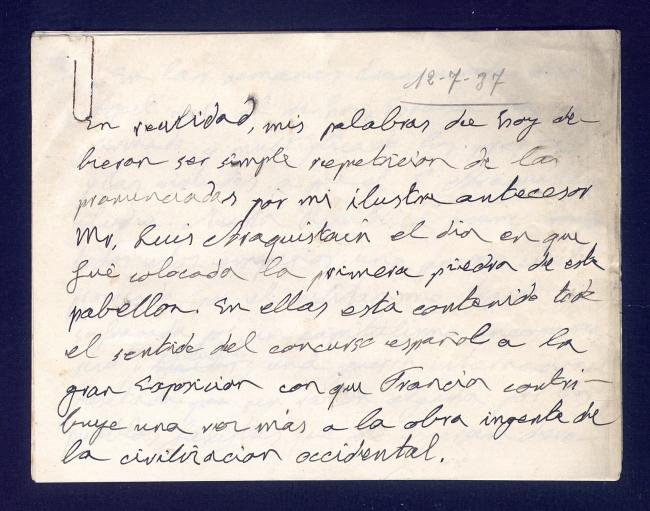 12-7-37
En realidad, mis palabras de hoy de-
bieran ser simple repetición de las
pronunciadas por mi ilustre antecesor
Mr. Luis Araquistain el dia en que
fué colocada la primera piedra de este
pabellon. En ellas está contenido todo
el sentido del concurso español a la
gran Exposicion con que Francia contri-
buye una vez más a la obra ingente de
la civilizacion occidental.